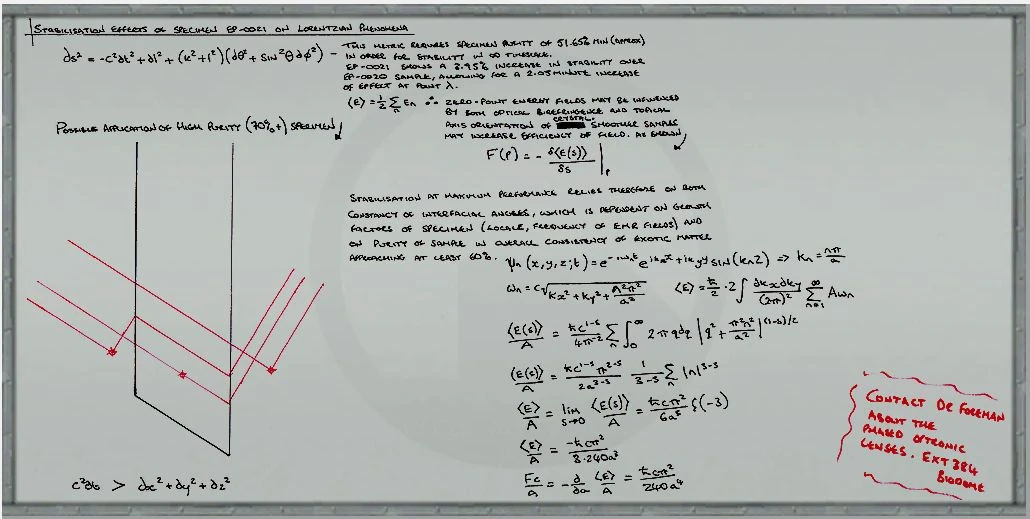 STABILISATION EFFECTS OF SPECIMEN EP-0021 ON LORENTZIAN PHENOMENA
ds² = -c²dt² + dl² + (k² + l²)(dθ² + sin²θdφ²) – THIS METRIC REQUIRES SPECIMEN PURITY OF 51.65% MIN (APPROX)
IN ORDER FOR STABILITY IN ∞ TIMESCALE.
EP-0021 SHOWS A 3.95% INCREASE IN STABILITY OVER
EP-0020 SAMPLE, ALLOWING FOR A 2.05 MINUTE INCREASE
OF EFFECT AT POINT λ.
⟨E⟩ = ½ Σn En ∴ ZERO-POINT ENERGY FIELDS MAY BE INFLUENCED
BY BOTH OPTICAL BIREFRINGENCE AND TOPICAL
AXIS ORIENTATION OF CRYSTAL. SMOOTHER SAMPLES
MAY INCREASE EFFICIENCY OF FIELD. AS SHOWN
POSSIBLE APPLICATION OF HIGH PURITY (70%+) SPECIMEN
F(p) = - δ⟨E(s)⟩/δs |p
STABILISATION AT MAXIMUM PERFORMANCE RELIES THEREFORE ON BOTH
CONSTANCY OF INTERFACIAL ANGLES, WHICH IS DEPENDENT ON GROWTH
FACTORS OF SPECIMEN (LOCALE, FREQUENCY OF EMR FIELDS) AND
ON PURITY OF SAMPLE IN OVERALL CONSISTENCY OF EXOTIC MATTER
APPROACHING AT LEAST 60%.
ψn(x,y,z;t) = e^-iωnt e^ikxx+ikyy sin(knz) ⇒ kn = nπ/a
ωn = c√(kx² + ky² + n²π²/a²) ⟨E⟩ = ħ/2 · 2∫ dkxdky/(2π)² Σn=1^∞ Aωn
⟨E(s)⟩/A = ħc^1-s/4π^2 Σn ∫0^∞ 2πqdq |q² + π²n²/a²|^(1-s)/2
⟨E(s)⟩/A = ħc^1-s π^2-s/2a^3-s 1/3-s Σn |n|^3-s
⟨E⟩/A = lim s→0 ⟨E(s)⟩/A = ħcπ²/6a³ ζ(-3)
⟨E⟩/A = -ħcπ²/3·240a³
Fc/A = - d/da ⟨E⟩/A = ħcπ²/240a⁴
CONTACT DR FOREMAN
ABOUT THE
PHASED OPTRONIC
LENSES. EXT 384
BIODOME
c²dt > dx² + dy² + dz²